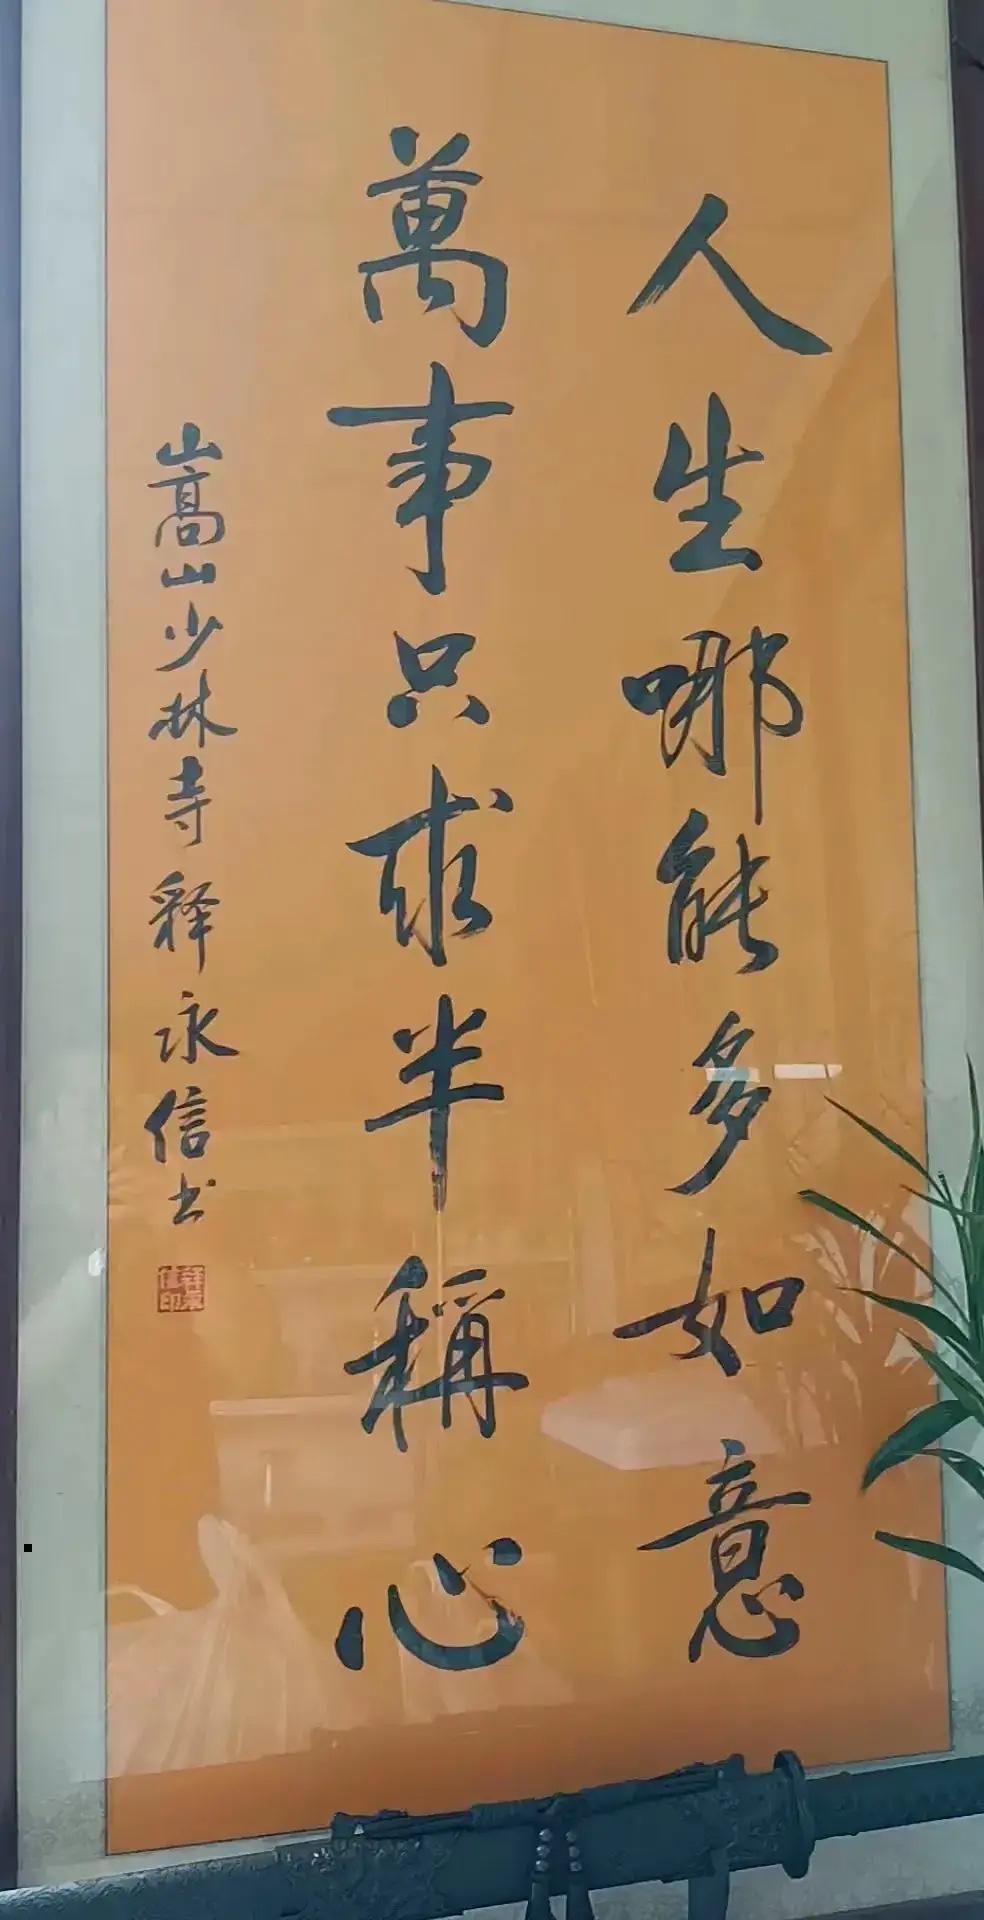 人生哪能多如意
萬事只求半稱心
嵩山少林寺释永信书